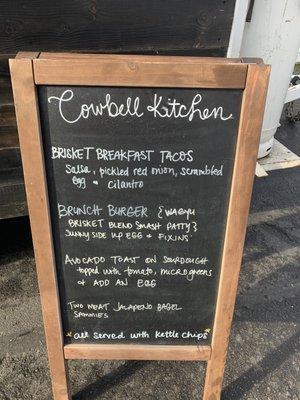 Cowbell Kitchen
BRISKET BREAKFAST TACOS
Salsa, pickled red onion, scrambled
egg & cilantro
BRUNCH BURGER {WAGYU
BRISKET BLEND SMASH PATTY}
SUNNY SIDE UP EGG & FIXINS'
AVOCADO TOAST ON SOURDOUGH
topped with tomato, microgreens
& ADD AN EGG
TWO MEAT JALAPENO BAGEL
SAMMIES
all served with kettle chips